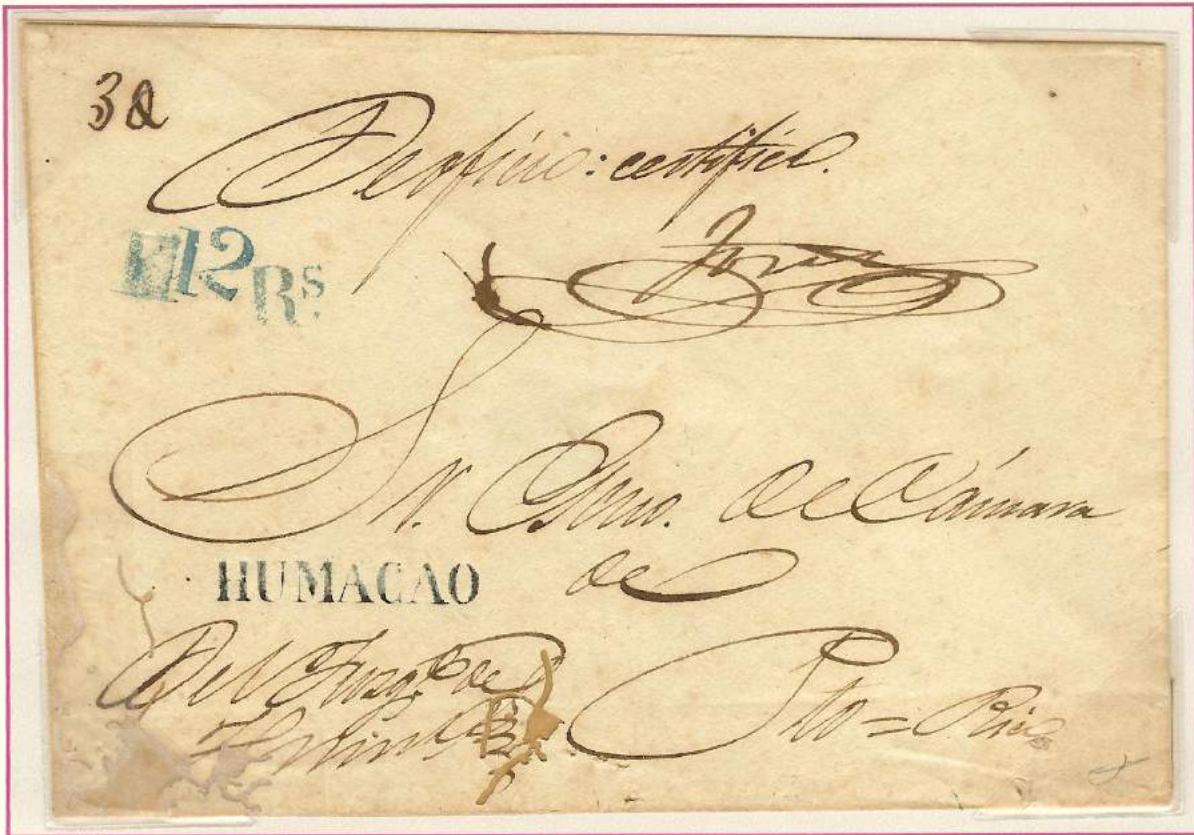 De oficio: certific.
12 Rs.
Sr. Esno. de Cámara
HUMACAO
de
Del Juzg.º de
Pto=Rico